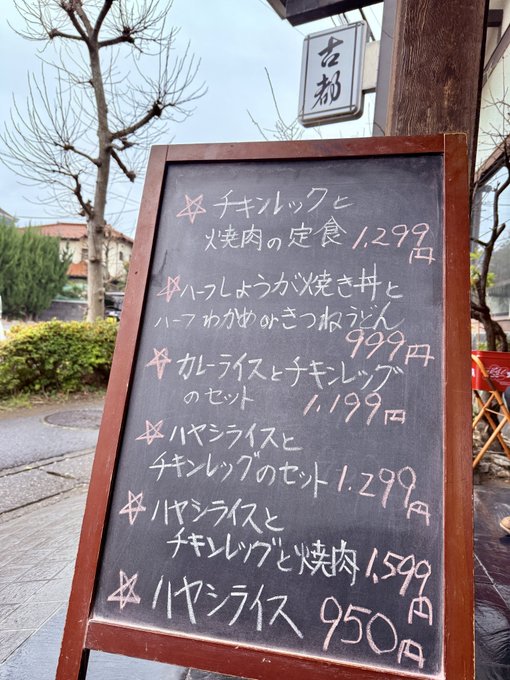 古都
☆チキンレックと
焼肉の定食 1.299円
☆ハーフしょうが焼き丼と
ハーフわかめorきつねうどん
999円
☆カレーライスとチキンレッグ
のセット 1.199円
☆ハヤシライスと
チキンレッグのセット 1.299円
☆ハヤシライスと
チキンレッグと焼肉 1,599円
☆ハヤシライス 950円